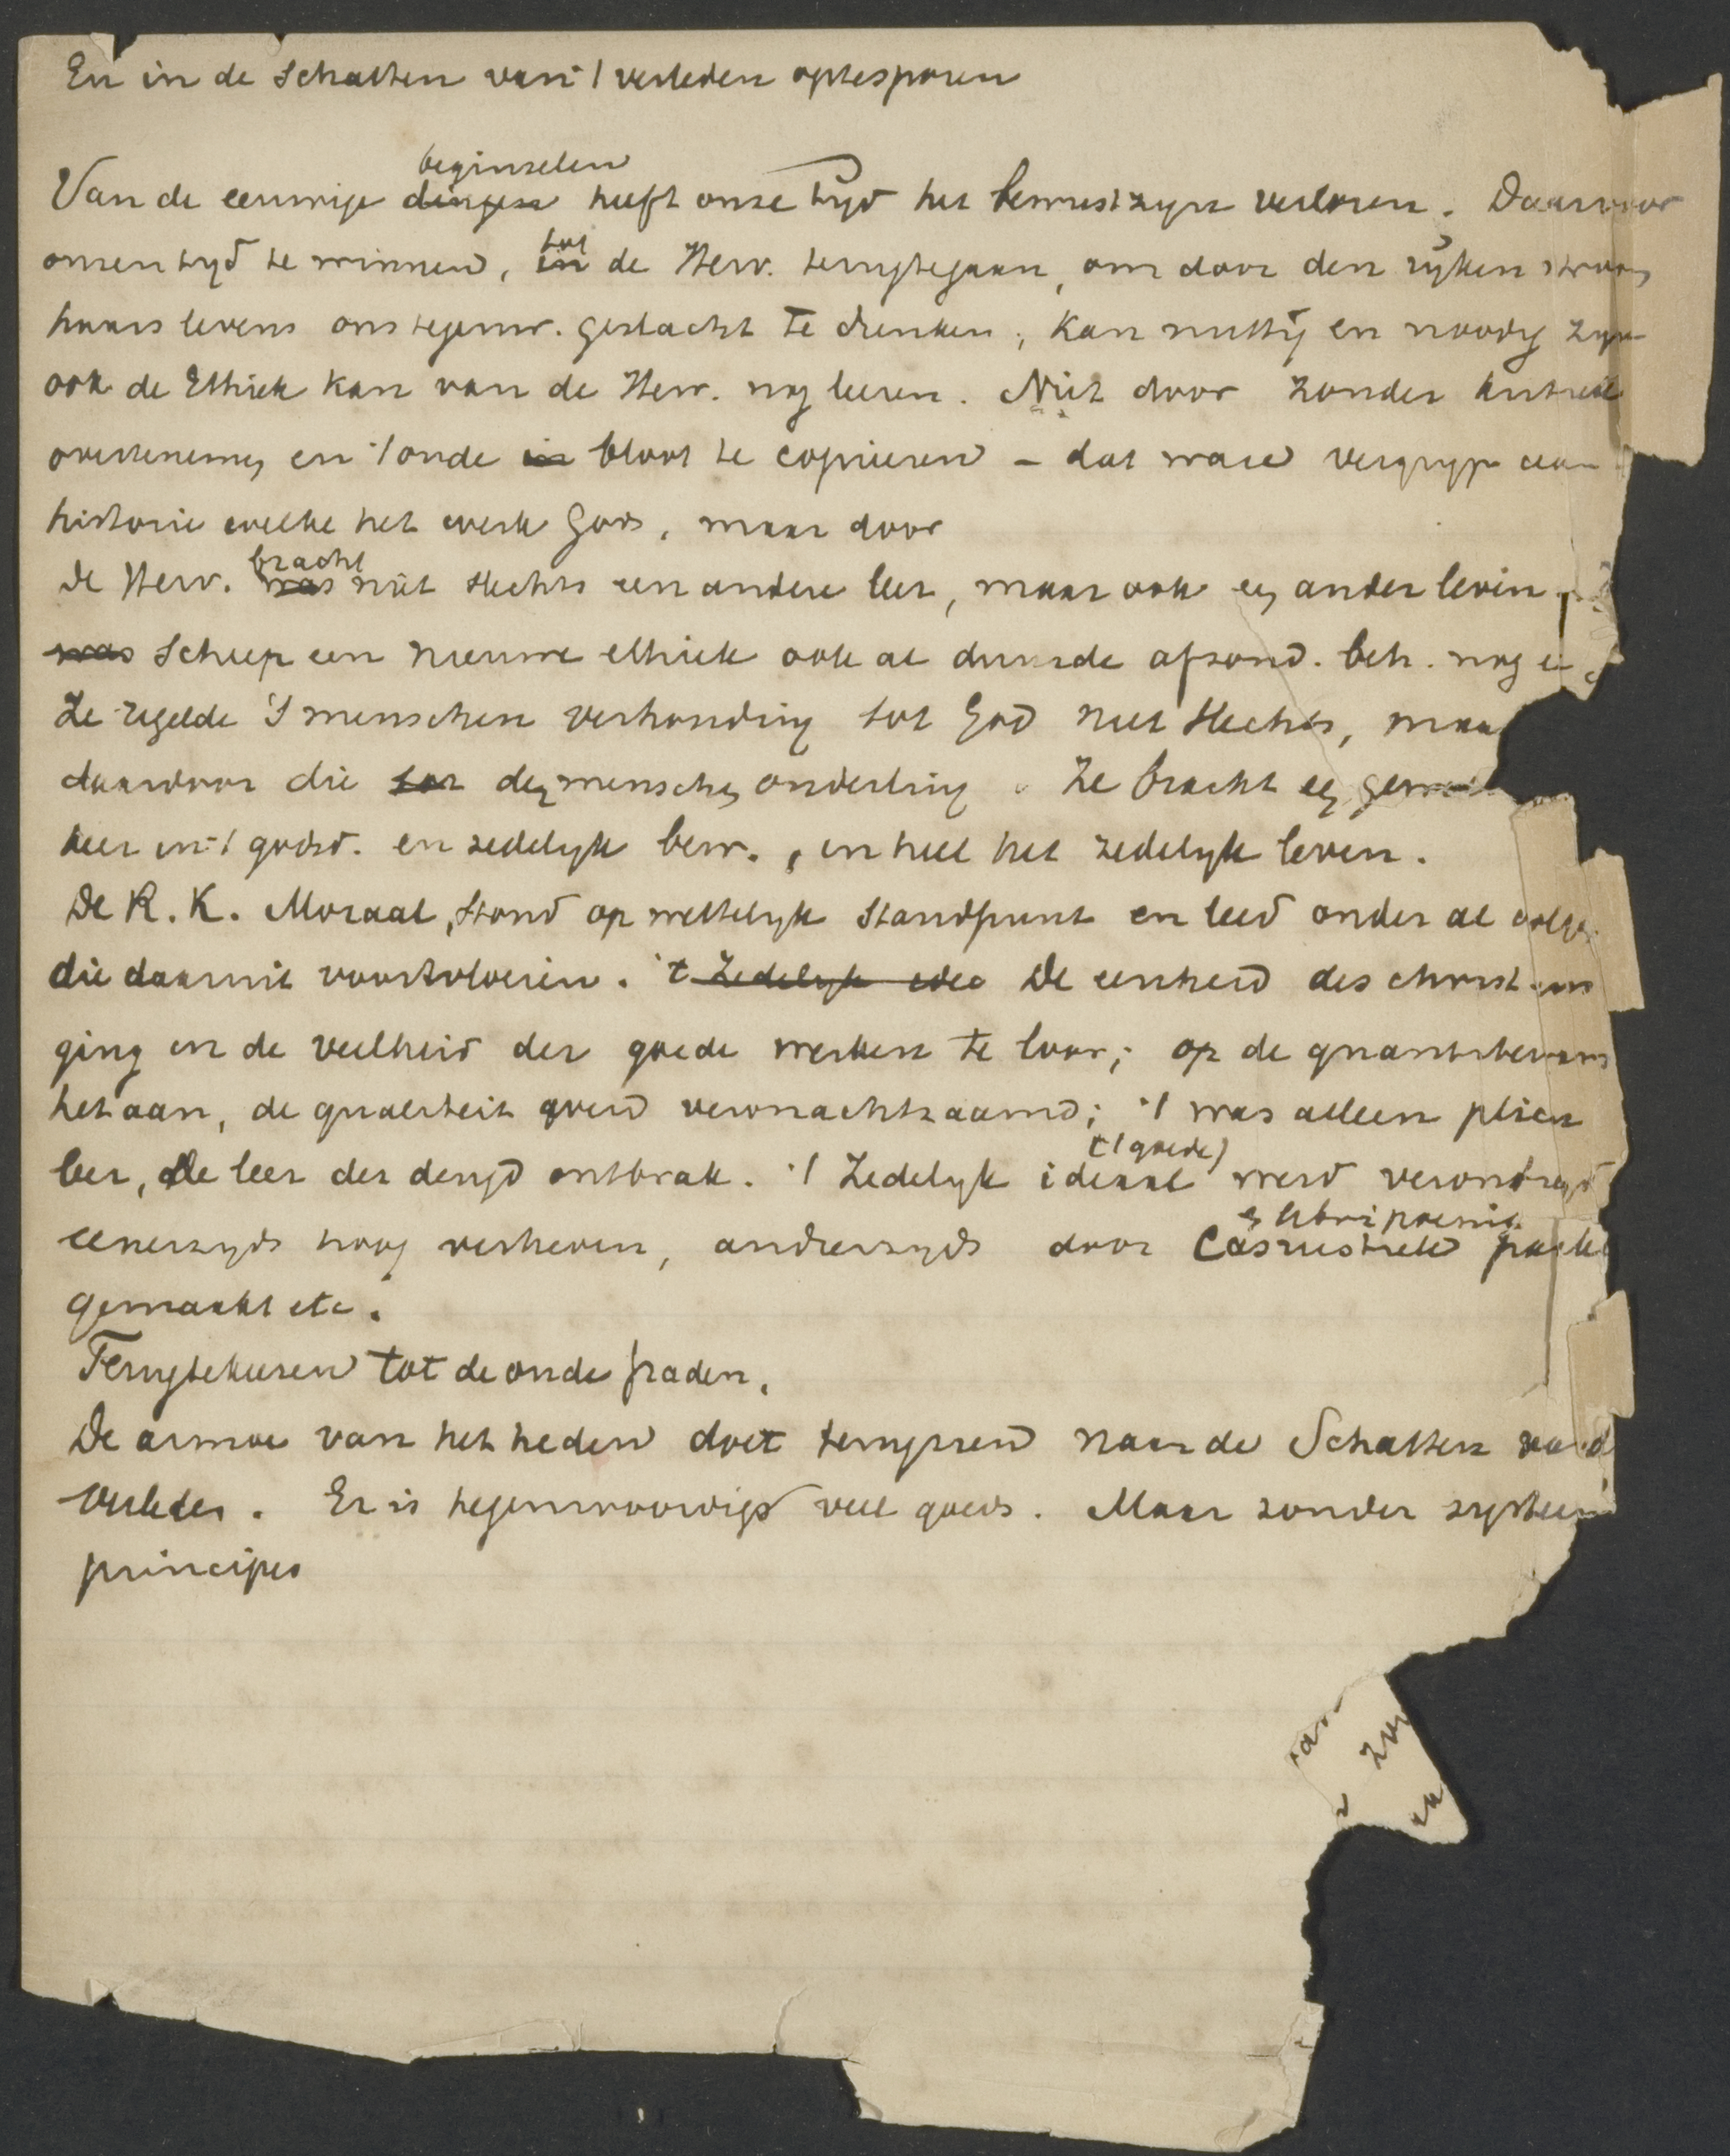 En in de schatten van 't verleden optesporen
beginselen
Van de eeuwige dingen heeft onze tyd het bewustzyn verloren. Daarvoor
onzen tyd te winnen, in tot de Herv. terugtegaan, om door den ryken stroom
haars levens ons tegenw. geslacht te drenken, kan nuttig en noodig zyn
ook de Ethiek kan van de Herv. nog leeren. Niet door zonder kritiek
overtenemen en 't oude in bloot te copieeren – dat ware vergryp aan
historie welke het werk Gods, maar door
bracht
De Herv. was niet slechts een andere leer, maar ook een ander leven
was schiep een nieuwe ethiek ook al duurde afzond. beh. nog
Ze regelde 's menschen verhouding tot God niet slechts, maar
daardoor die tot der menschen onderling. Ze bracht een
keer in 't godsd. en zedelyk bew., in heel het zedelyk leven.
De R. K. Moraal, stond op wettelyk standpunt en leed onder al
die daaruit voortvloeien. 't Zedelyk idee De eenheid des
ging in de veelheid der goede werken te loor; op de quantiteit kwam
het aan, de qualiteit werd verwaachtzaamd; 't was alleen plicht
('t goede)
leer, de leer der deugd ontbrak. 't Zedelyk ideaal werd
en
eenerzyds hoog verheven, anderzyds door Casuistiek
gemaakt etc.
Terugtekeeren tot de oude paden.
De armoe van het heden doet terugzien naar de Schatten
verleden. Er is tegenwoordigs veel goeds. Maar zonder systeem
principes